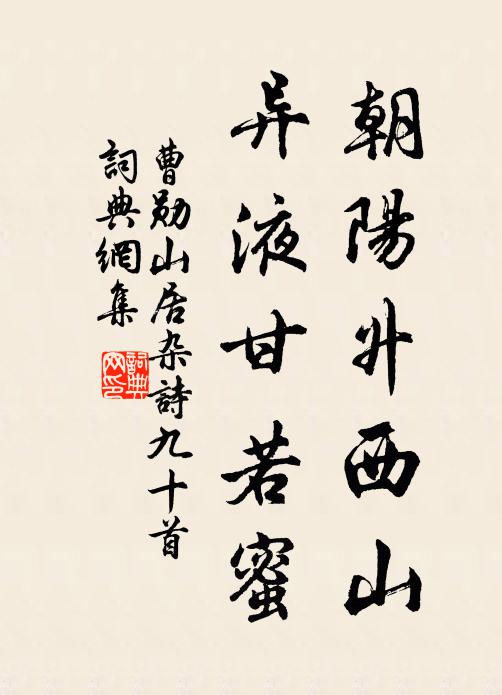 朝陽升西山
异液甘若蜜
曹勋山居杂詩九十首
詞典網集
詞典网印